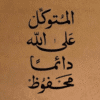 المتوكل
على الله
دائما
محفوظ